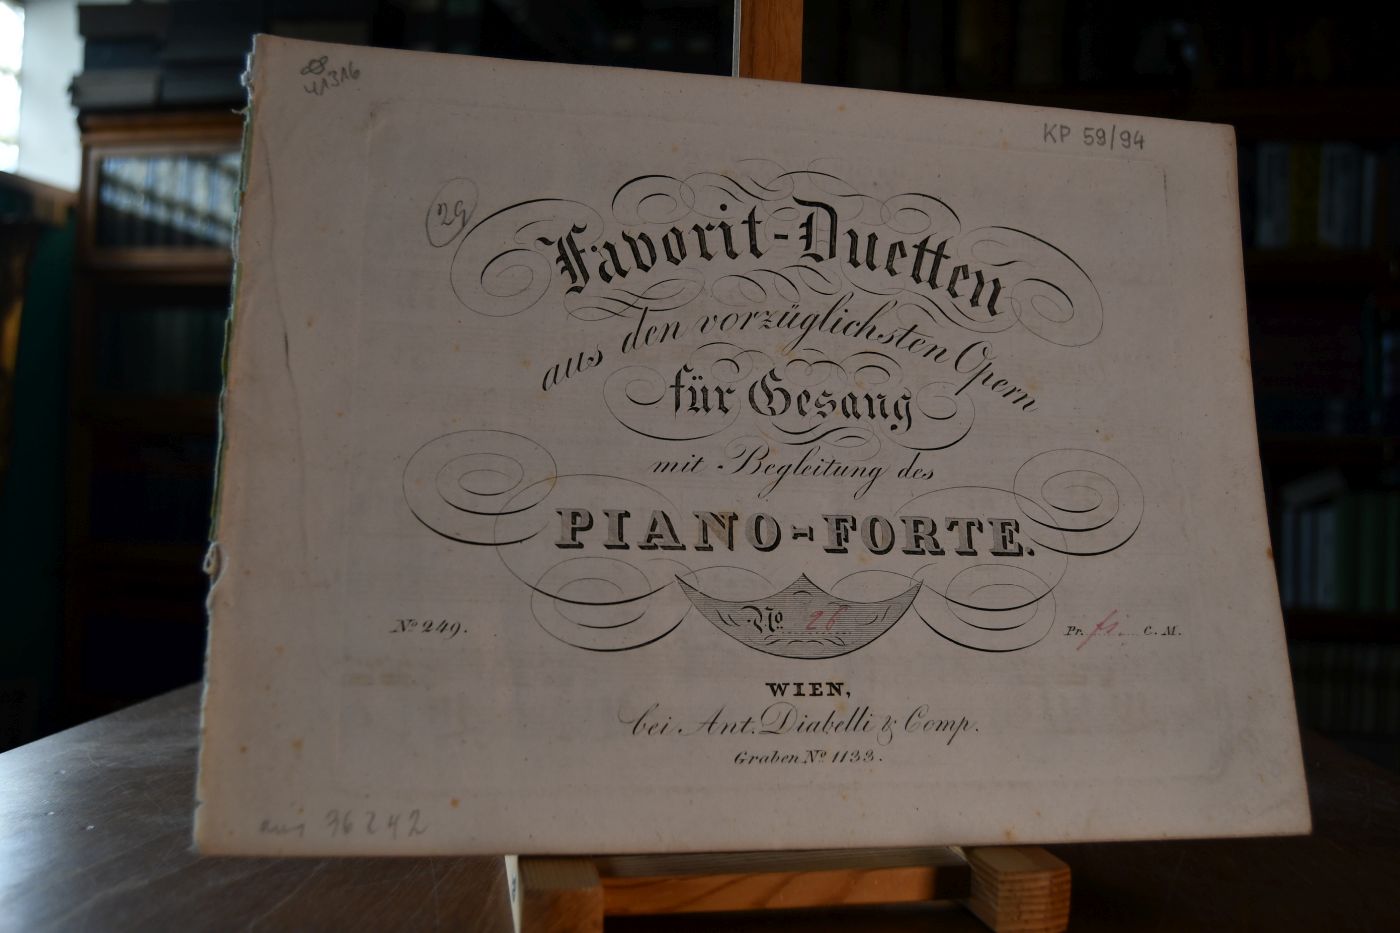 41316
KP 59/94
29
Favorit-Duetten
aus den vorzüglichsten Opern
für Gesang
mit Begleitung des
PIANO-FORTE.
No 26
No 249.
Pr. C. M.
WIEN,
bei Ant. Diabelli & Comp.
Graben No 1133.
aus 36242